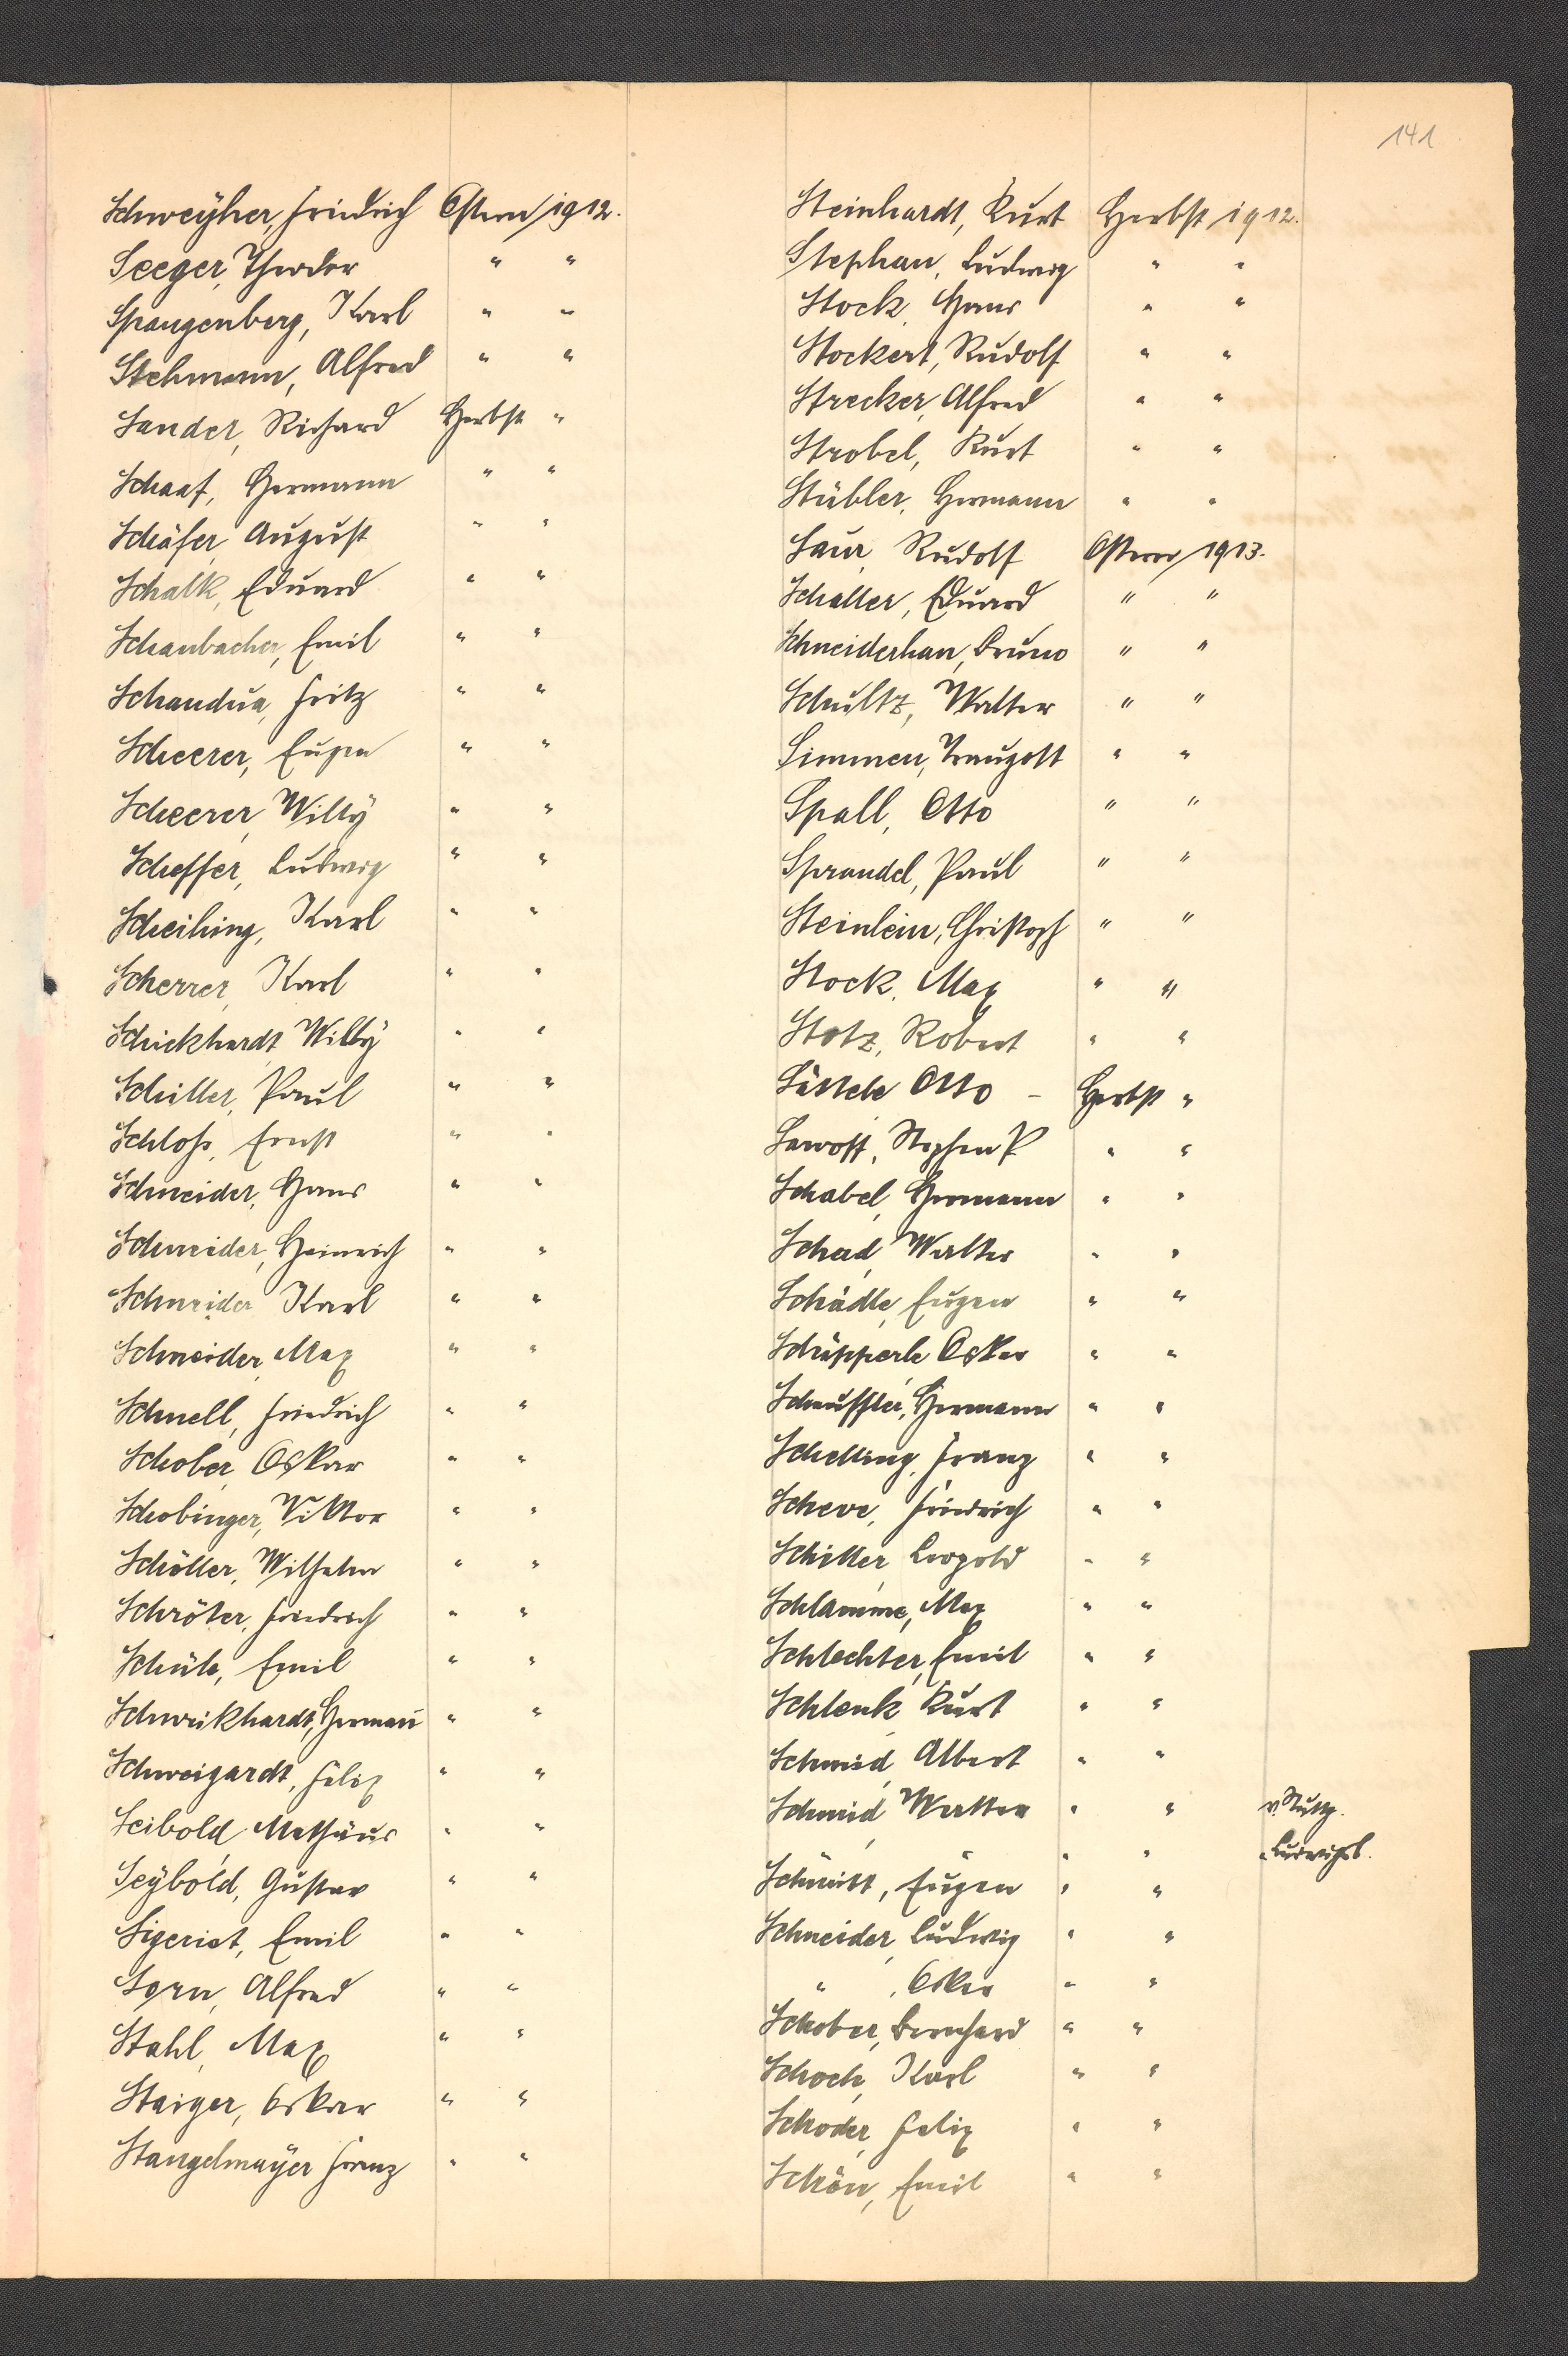 141
Schweÿher, Friedrich Ostern 1912.
Seeger, Theodor " "
Spangenberg, Karl " "
Stehmann, Alfred " "
Sander, Richard Herbst "
Schaaf, Hermann " "
Schäfer, August " "
Schalk, Eduard " "
Schanbacher, Emil " "
Schandua, Fritz " "
Scheerer, Eugen " "
Scheerer, Willÿ " "
Scheffer, Ludwig " "
Scheihing, Karl " "
Scherrer, Karl " "
Schickhardt, Willÿ " "
Schiller, Paul " "
Schloß, Ernst " "
Schneider, Hans " "
Schneider, Heinrich " "
Schneider, Karl " "
Schneider, Max " "
Schnell, Friedrich " "
Schober, Oskar " "
Schobinger, Viktor " "
Schöller, Wilhelm " "
Schröter, Friedrich " "
Schüle, Emil " "
Schweikhardt, Hermann " "
Schweigardt, Felix " "
Seibold, Mathäus " "
Seÿbold, Gustav " "
Sigerist, Emil " "
Sorn, Alfred " "
Stahl, Max " "
Staiger, Oskar " "
Stangelmaÿer Franz " "
Steinhardt, Kurt Herbst 1912.
Stephan, Ludwig " "
Stock, Hans " "
Stockert, Rudolf " "
Strecker, Alfred " "
Strobel, Kurt " "
Stübler, Hermann " "
Saur, Rudolf Ostern 1913.
Schaller, Eduard " "
Schneiderhan, Bruno " "
Schultz, Walter " "
Simmen, Traugott " "
Spall, Otto " "
Sprandel, Paul " "
Steinlein, Christoph " "
Stock, Max " "
Stotz, Robert " "
Otto – Herbst "
Sawoff, Stephen P " "
Schabel, Hermann " "
Schad, Walter " "
Schädle, Eugen " "
Schäpperle, Oskar " "
Schauffler, Hermann " "
Schelling, Franz " "
Scheve, Friedrich " "
Schiller, Leopold " "
Schlamme, Max " "
Schlechter, Emil " "
Schlenk, Kurt " "
Schmid, Albert " "
Schmid, Walter " " v. Stuttg.
" " " " " Ludwigsb.
Schmitt, Eugen " "
Schneider, Ludwig " "
" , Oskar " "
Schober, Bernhard " "
Schoch, Karl " "
Schoder, Felix " "
Schön, Emil " "